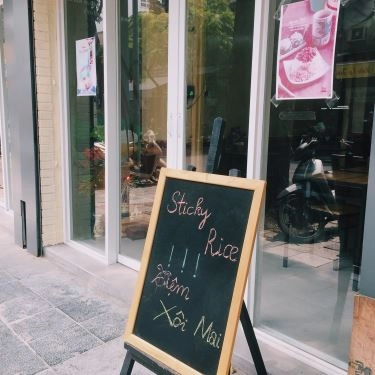 Sticky
Rice
!!!
Tiêm
Xôi Mai